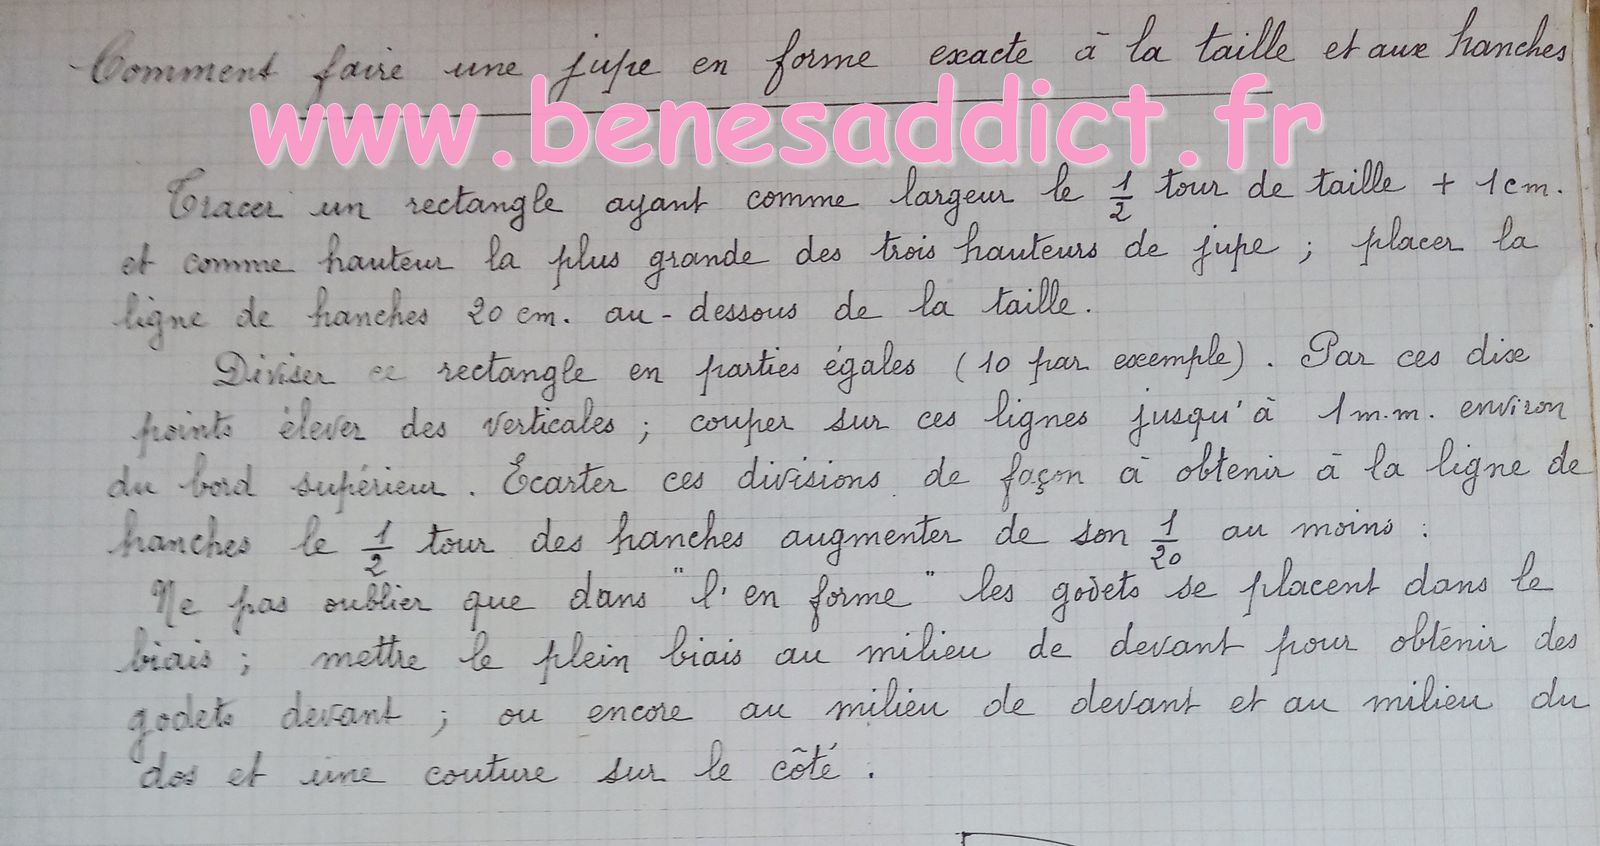 Comment faire une jupe en forme exacte à la taille et aux hanches
www.benesaddict.fr
Tracer un rectangle ayant comme largeur le 1/2 tour de taille + 1 cm.
et comme hauteur la plus grande des trois hauteurs de jupe ; placer la
ligne de hanches 20 cm. au-dessous de la taille.
Diviser ce rectangle en parties égales (10 par exemple). Par ces dix
points élever des verticales ; couper sur ces lignes jusqu'à 1 m.m. environ
du bord supérieur. Ecarter ces divisions de façon à obtenir à la ligne de
hanches le 1/2 tour des hanches augmenter de son 1/20 au moins :
Ne pas oublier que dans "l'en forme" les godets se placent dans le
biais ; mettre le plein biais au milieu de devant pour obtenir des
godets devant ; ou encore au milieu de devant et au milieu du
dos et une couture sur le côté.